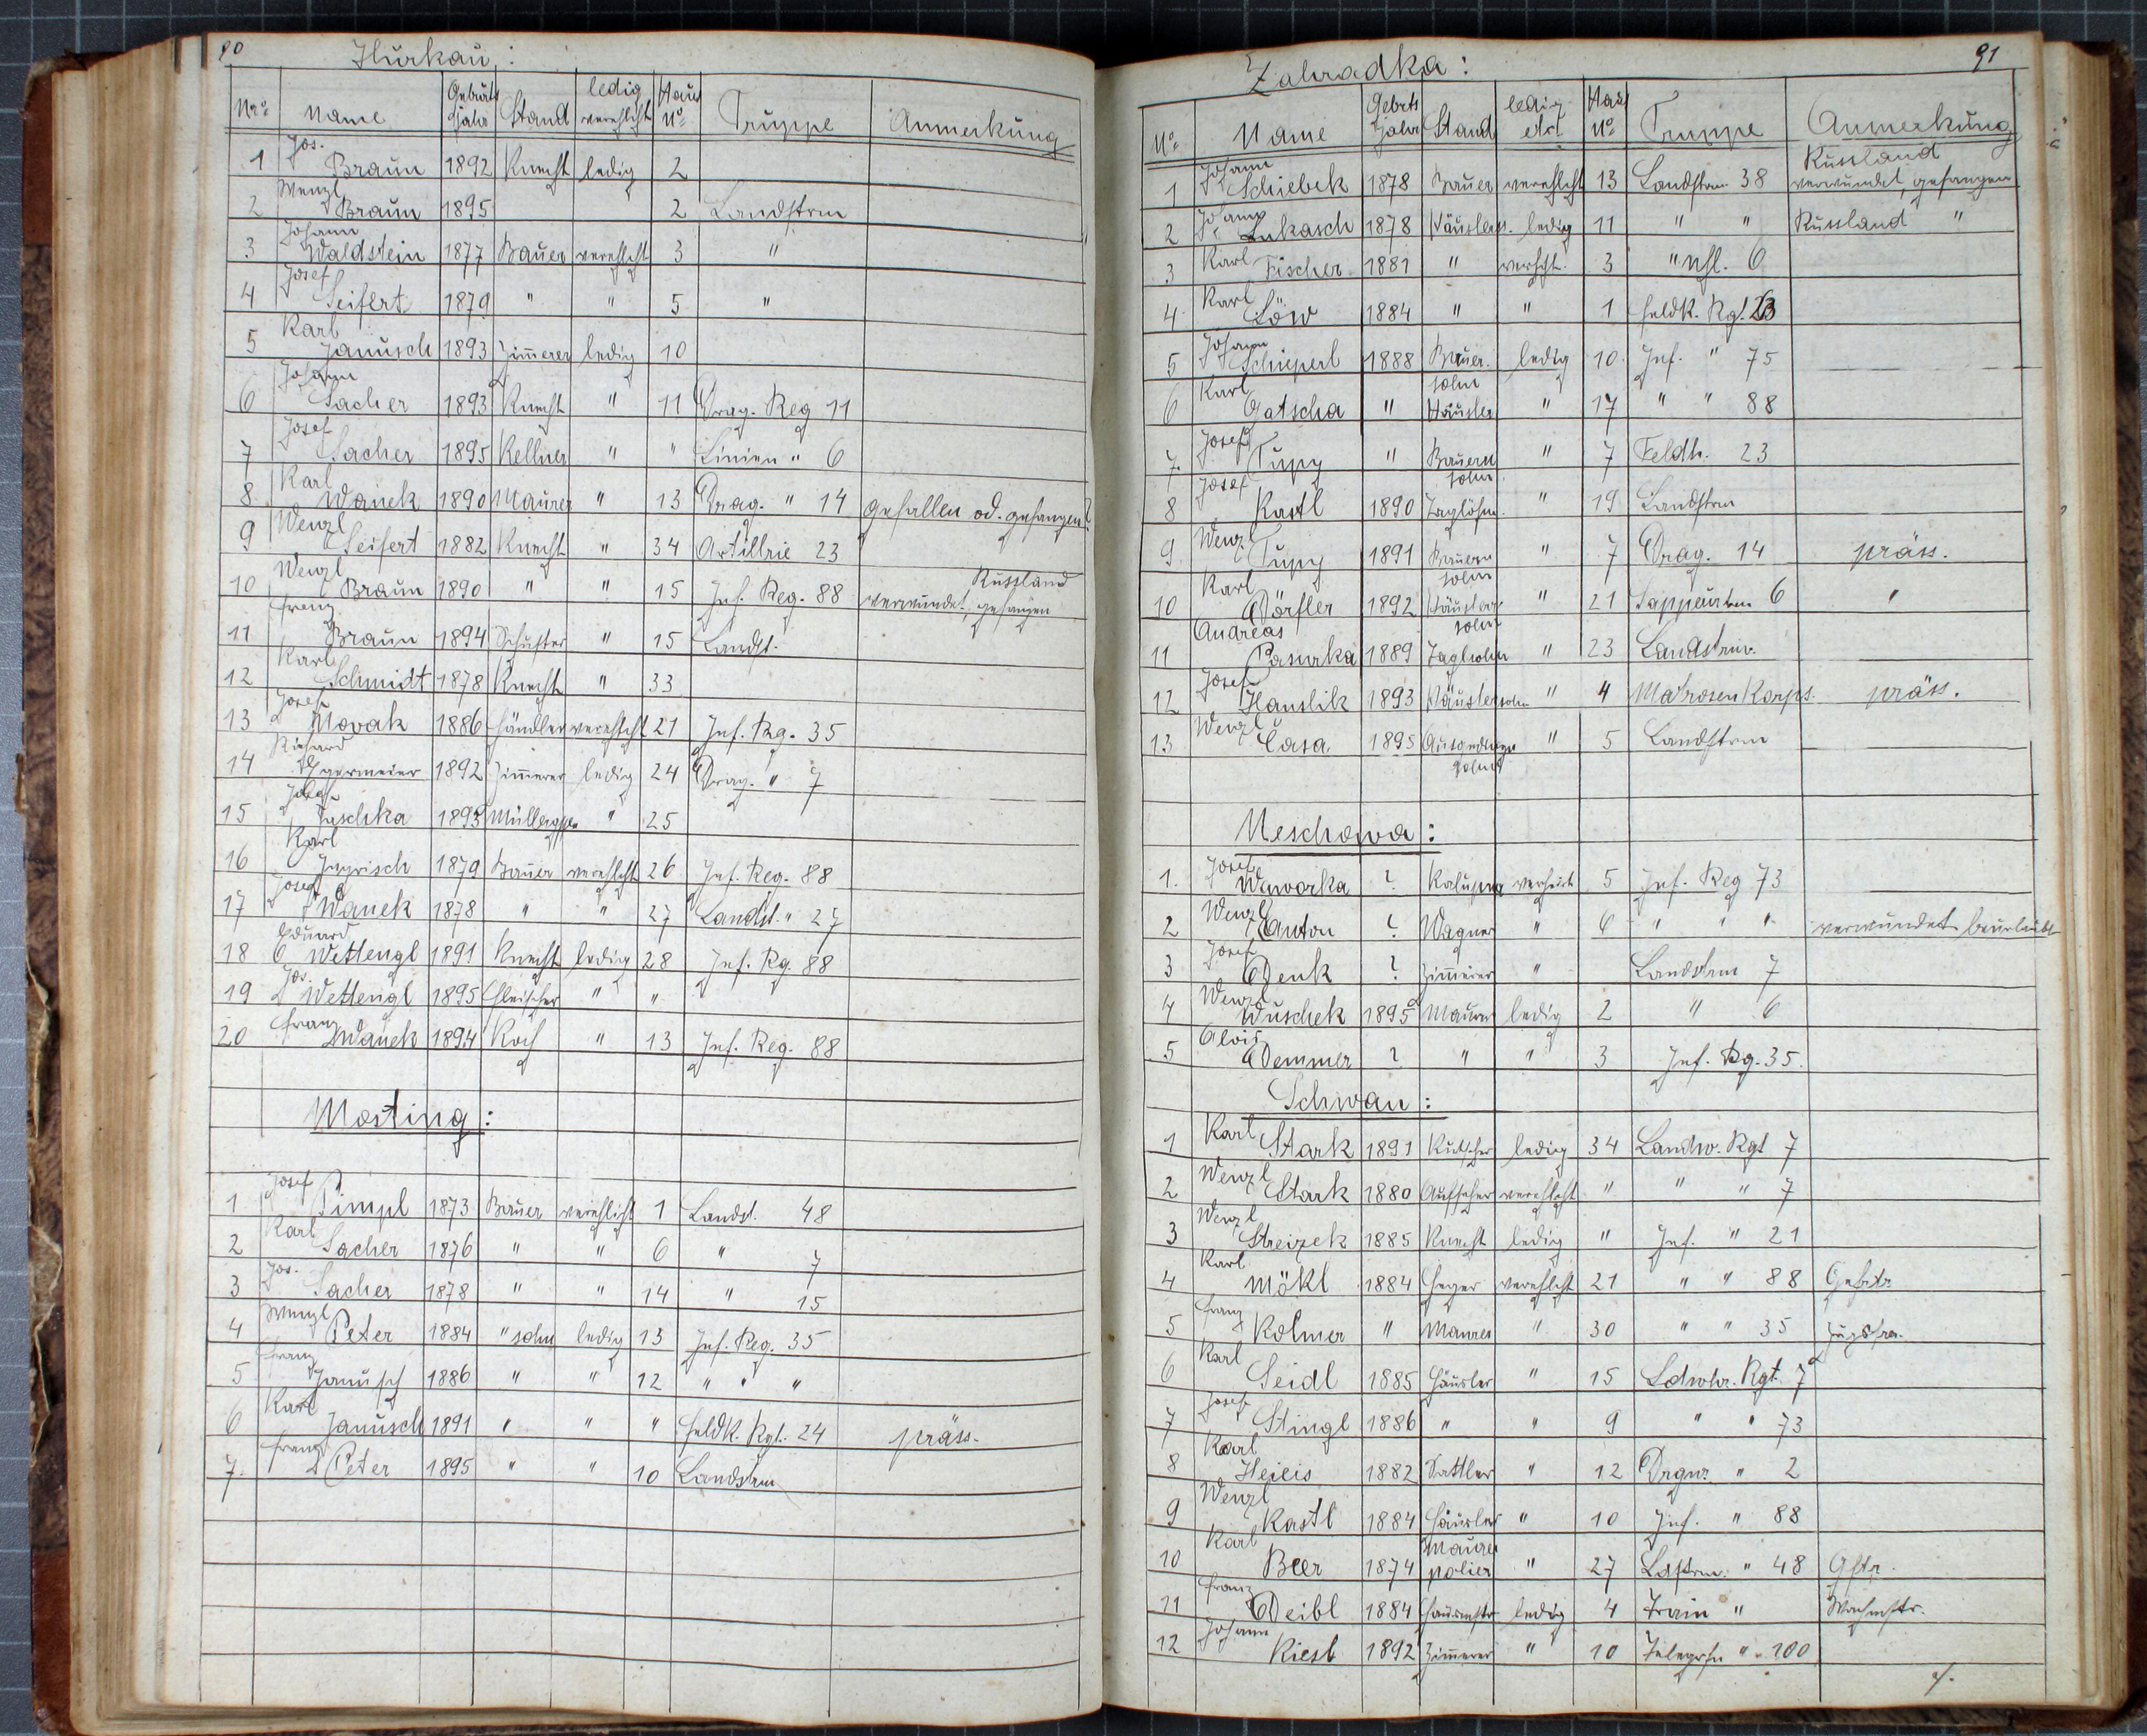 90
Hurkau:
Nro Name Geburts Jahr Stand ledig verehlicht Haus No Truppe Anmerkung
1 Jos. Braun 1892 Knecht ledig 2
2 Wenzl Braun 1895 2 Landstrm
3 Johann Waldstein 1877 Bauer verehlcht 3 "
4 Josef Seifert 1879 " " 5 "
5 Karl Janusch 1893 Zimmerer ledig 10
6 Johann Sacher 1893 Knecht " 11 Drag. Reg 11
7 Josef Sacher 1895 Kellner " " Linien " 6
8 Karl Wanek 1890 Maurer " 13 Drag. " 14 gefallen od. gefangen?
9 Wenzl Seifert 1882 Knecht " 34 Artillrie 23
10 Wenzl Braun 1890 " " 15 Inf. Reg. 88 Russland verwundet, gefangen
11 Franz Braun 1894 Schuster " 15 Landst.
12 Karl Schmidt 1878 Knecht " 33
13 Josef Novak 1886 Händler verehlcht 21 Inf. Rg. 35
14 Richard 1892 Zimmerer ledig 24 Drag. " 7
15 Josef Juschka 1895 " 25
16 Karl 1879 Bauer verehlcht 26 Inf. Reg. 88
17 Josef Wanek 1878 " " 27 Landst. " 27
18 Eduard Wettengl 1891 Knecht ledig 28 Inf. Rg. 88
19 Jos. Wettengl 1895 Fleischer " "
20 Franz Wanek 1894 Koch " 13 Inf. Reg. 88
Mosting:
1 Josef Pimpl 1873 Bauer verehlicht 1 Landst. 48
2 Karl Sacher 1876 " " 6 " 7
3 Jos. Sacher 1878 " " 14 " 15
4 Wenzl Peter 1884 " sohn ledig 13 Inf. Reg. 35
5 Franz Janusch 1886 " " 12 " " "
6 Karl Janusch 1891 " " " Feldk. Rgt. 24 präs.
7. Franz Peter 1895 " " 10 Landstrm
91
Zahradka:
No Name Gebrts Jahr Stand ledig etc Haus No Truppe Anmerkung
1 Johann Schiebek 1878 Bauer verehlcht 13 Landstrm 38 Russland verwundet, gefangen
2 Johann Lukasch 1878 Häuslerss. ledig 11 " " Russland "
3 Karl Fischer 1881 " verhcht. 3 " 6
4 Karl Löw 1884 " " 1 Feldk. Rgt. 23
5 Johann Schieperl 1888 Bauer. sohn ledig 10. Inf. " 75
6 Karl Gatscha " Häusler " 17 " " 88
7. Josef Tupy " Bauern sohn " 7 Feldh. 23
8 Josef Kastl 1890 Taglöhn. " 19 Landstrm
9 Wenzl Tupy 1891 Bauern sohn " 7 Drag. 14 präs.
10 Karl Dörfler 1892 Häusler sohn " 21 Sappeurbon 6 "
11 Andreas Pasurka 1889 " 23 Landstrm.
12 Josef Hanslik 1893 Häuslersohn " 4 Matrosen Korps. präs.
13 Wenzl Časa 1895 Ausgedinger sohn " 5 Landstrm
Meschowa:
1. Josef Waworka ? verheirt 5 Inf. Reg 73
2 Wenzl Anton ? Wagner " 6 " " " verwundet beurlaubt
3 Josef Denk ? Zimmerer " Landstrm 7
4 Wenzl Wuschek 1895 Maurer ledig 2 " 6
5 Alois Demmer ? " " 3 Inf. Rg. 35.
Schwan:
1 Karl Stark 1891 Kutscher ledig 34 Landw. Rgt 7
2 Wenzl Stark 1880 Aufseher verehlcht " " " 7
3 Wenzl Streizek 1885 Knecht ledig " Inf. " 21
4 Karl Mökl 1884 Heger verehlcht 21 " " 88 Gefrtr
5 Franz Kolmer " Maurer " 30 " " 35 Zugsfrr.
6 Karl Seidl 1885 Häusler " 15 Ldwhr. Rgt. 7
7 Josef Stingl 1886 " " 9 " " 73
8 Karl Heieis 1882 Sattler " 12 Drgnr. " 2
9 Wenzl Kastl 1884 Häusler " 10 Inf. " 88
10 Karl Beer 1874 Maurer polier " 27 Ldstrm. " 48 Gftr.
11 Franz Deibl 1884 ledig 4 Train " Wachmstr.
12 Johann Kiesl 1892 Zimmerer " 10 Telegrfn " 100
./.